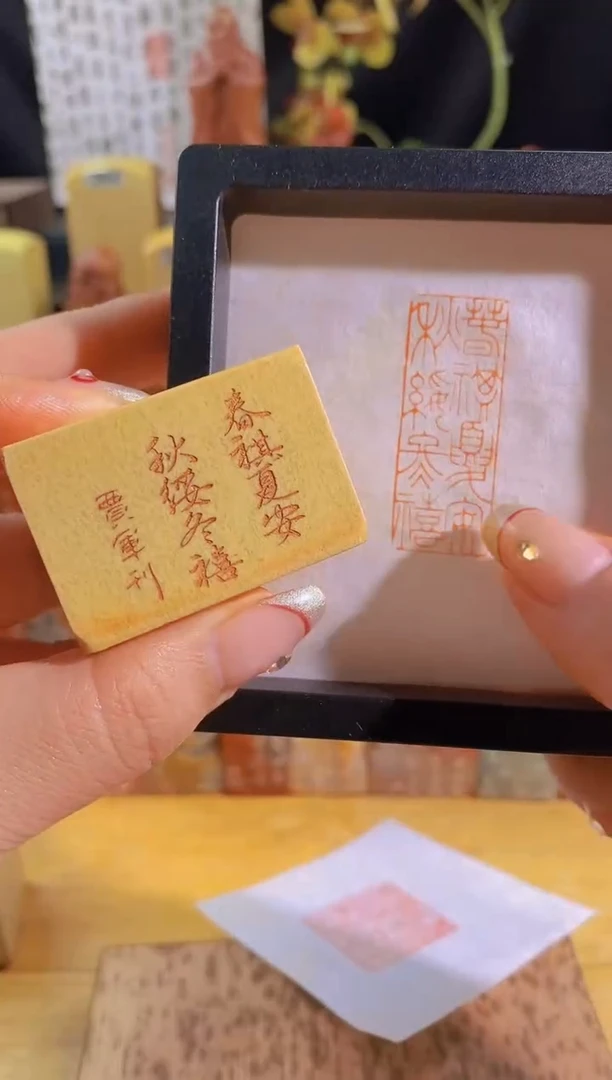 春祺夏安
秋绥冬禧
贾军刊
春祺夏安
秋绥冬禧